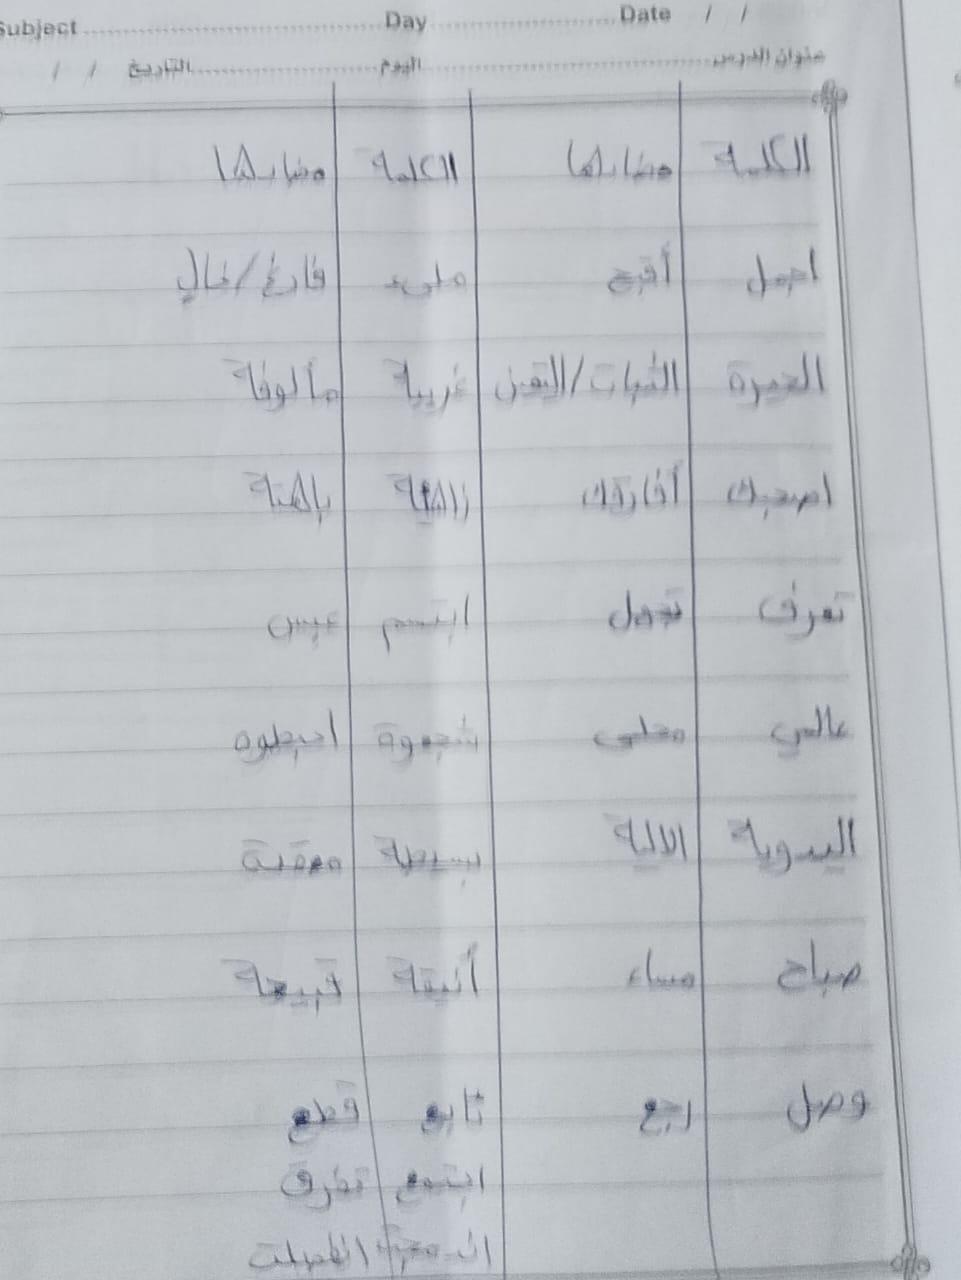 Subject Day Date / /
عنوان الدرس اليوم التاريخ / /
الكلمة مضادها الكلمة مضادها
اجمل أقبح مليء فارغ/خالٍ
الحيرة الثبات/اليقين غريبة مألوفة
اصحبك أفارقك زاهية باهتة
تعرف تجهل ابتسم عبس
عالمي محلي شجعوه احبطوه
اليدوية الالية بسيطة معقدة
صباح مساء أنيقة قبيحة
وصل رجع تابع قطع
اجتمع تفرق
اندمجت انفصلت